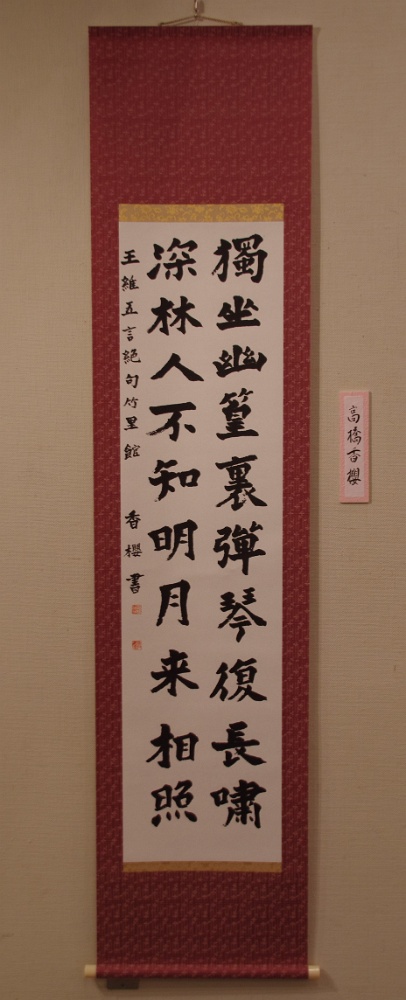 獨坐幽篁裏彈琴復長嘯
深林人不知明月来相照
王維五言絕句竹里館 香櫻書
高橋香櫻